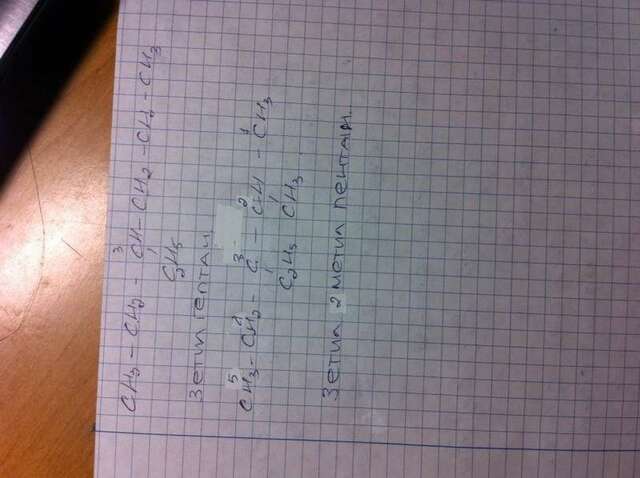 3
CH3 - CH2 - CH - CH2 - CH2 - CH3
C2H5
3 етил гептан
5 4 3 2 1
CH3 - CH2 - C - CH - CH3
C2H5 CH3
3 етил 2 метил пентан